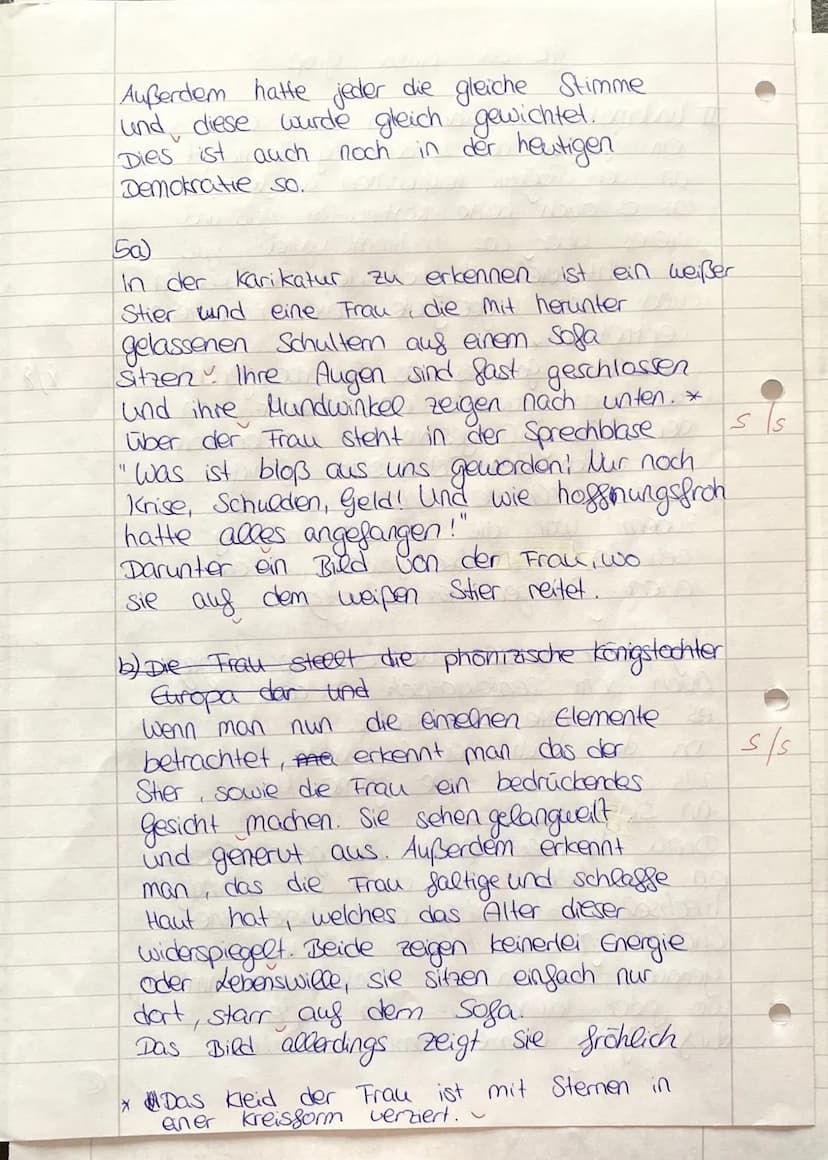 Außerdem hatte jeder die gleiche Stimme
und diese wurde gleich gewichtet.
Dies ist auch noch in der heutigen
Demokratie so.
5a)
In der Karikatur zu erkennen ist ein weißer
Stier und eine Frau, die mit herunter
gelassenen Schultern auf einem Sofa
sitzen. Ihre Augen sind fast geschlossen
und ihre Mundwinkel zeigen nach unten. *
Über der Frau steht in der Sprechblase
s/s
"Was ist bloß aus uns geworden! Nur noch
Krise, Schulden, Geld! Und wie hoffnungsfroh
hatte alles angefangen!"
Darunter ein Bild von der Frau, wo
sie auf dem weißen Stier reitet.
b) Die Frau stellt die phönizische Königstochter
Europa dar und
Wenn man nun die einzelnen Elemente
betrachtet, ma erkennt man das der
s/s
Stier, sowie die Frau ein bedrückendes
Gesicht machen. Sie sehen gelangweilt
und genervt aus. Außerdem erkennt
man, das die Frau faltige und schlaffe
Haut hat, welches das Alter dieser
widerspiegelt. Beide zeigen keinerlei Energie
oder Lebenswille, sie sitzen einfach nur
dort, starr auf dem Sofa.
Das Bild allerdings zeigt sie fröhlich
* Das Kleid der Frau ist mit Sternen in
einer Kreisform verziert.